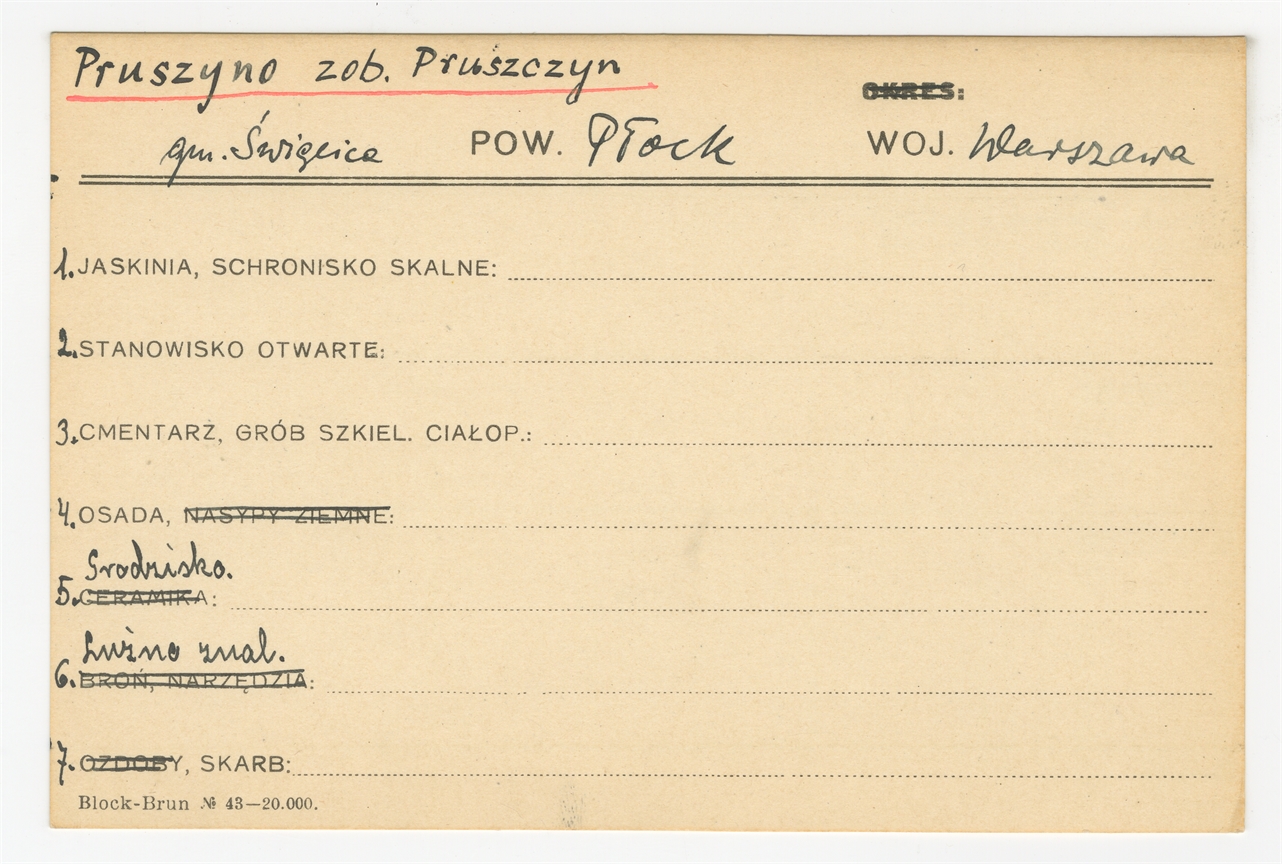 Pruszyno zob. Pruszczyn
OKRES:
gm. Święcica POW. Płock WOJ. Warszawa
1. JASKINIA, SCHRONISKO SKALNE:
2. STANOWISKO OTWARTE:
3. CMENTARZ, GRÓB SZKIEL. CIAŁOP.:
4. OSADA, NASYPY ZIEMNE:
Grodzisko.
5. CERAMIKA:
Luźno znal.
6. BROŃ, NARZĘDZIA:
7. OZDOBY, SKARB:
Block-Brun № 43—20.000.